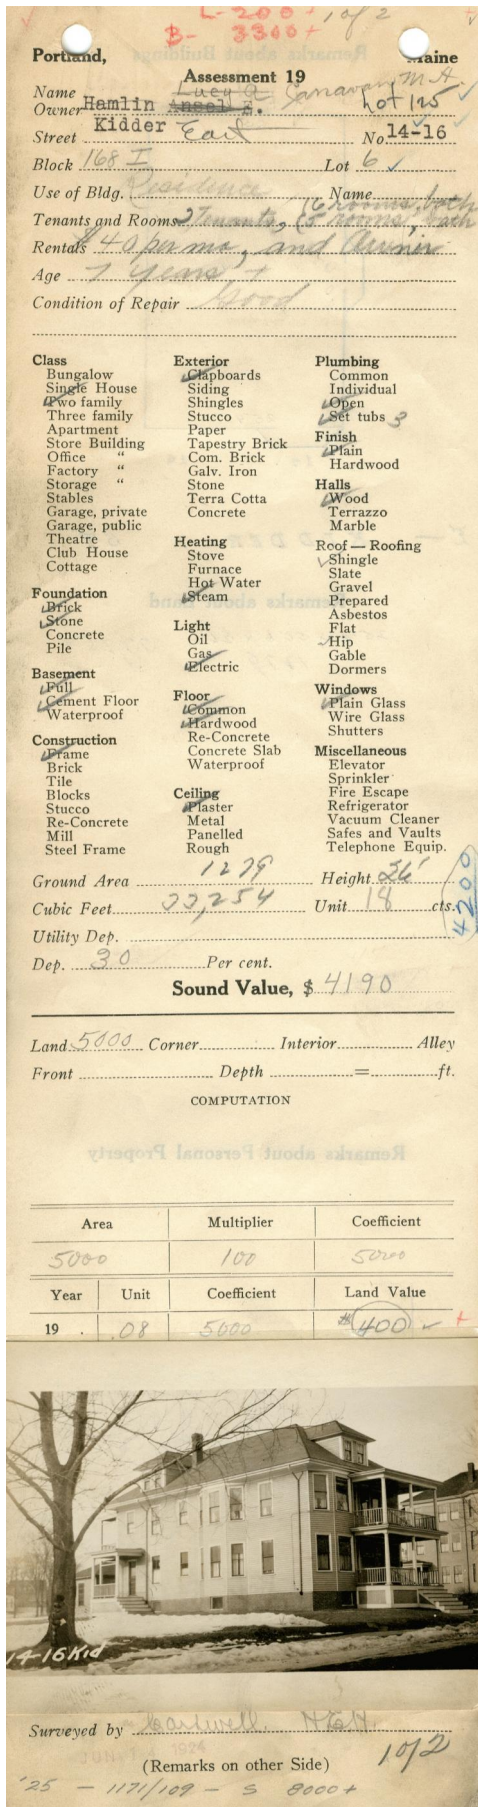 L-200 + 1 of 2
B- 3300 +
Portland, Maine
Assessment 19
Name Lucy A. Canavan M.A.
Owner Hamlin Ansel E. Lot 125
Street Kidder East No 14-16
Block 168 I Lot 6
Use of Bldg. Residence Name
Tenants and Rooms 2 Tenants, (6 rooms, bath (5 rooms, bath
Rentals $40 per mo, and Owner
Age 7 years +
Condition of Repair Good
Class
Bungalow
Single House
Two family
Three family
Apartment
Store Building
Office "
Factory "
Storage "
Stables
Garage, private
Garage, public
Theatre
Club House
Cottage
Foundation
Brick
Stone
Concrete
Pile
Basement
Full
Cement Floor
Waterproof
Construction
Frame
Brick
Tile
Blocks
Stucco
Re-Concrete
Mill
Steel Frame
Exterior
Clapboards
Siding
Shingles
Stucco
Paper
Tapestry Brick
Com. Brick
Galv. Iron
Stone
Terra Cotta
Concrete
Heating
Stove
Furnace
Hot Water
Steam
Light
Oil
Gas
Electric
Floor
Common
Hardwood
Re-Concrete
Concrete Slab
Waterproof
Ceiling
Plaster
Metal
Panelled
Rough
Plumbing
Common
Individual
Open
Set tubs 3
Finish
Plain
Hardwood
Halls
Wood
Terrazzo
Marble
Roof — Roofing
Shingle
Slate
Gravel
Prepared
Asbestos
Flat
Hip
Gable
Dormers
Windows
Plain Glass
Wire Glass
Shutters
Miscellaneous
Elevator
Sprinkler
Fire Escape
Refrigerator
Vacuum Cleaner
Safes and Vaults
Telephone Equip.
Ground Area 1279 Height 26'
Cubic Feet 33,254 Unit 18 cts.
4200
Utility Dep.
Dep. 30 Per cent.
Sound Value, $ 4190
Land 5000 Corner Interior Alley
Front Depth = ft.
COMPUTATION
Remarks about Personal Property
Area Multiplier Coefficient
5000 100 5000
Year Unit Coefficient Land Value
19 .08 5000 $400 +
14-16 Kid
Surveyed by Cardwell. H.E.H.
JUN 1924
(Remarks on other Side) 1 of 2
'25 - 1171/109 - S 8000 +